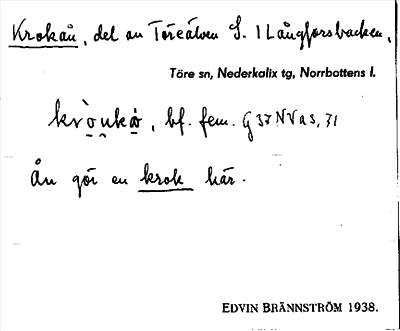 Krokån, del av Töreälven S. I Långforsbacken,
Töre sn, Nederkalix tg, Norrbottens l.
bf. fem. G 37 NV a 3, 71
Ån gör en krok här.
EDVIN BRÄNNSTRÖM 1938.